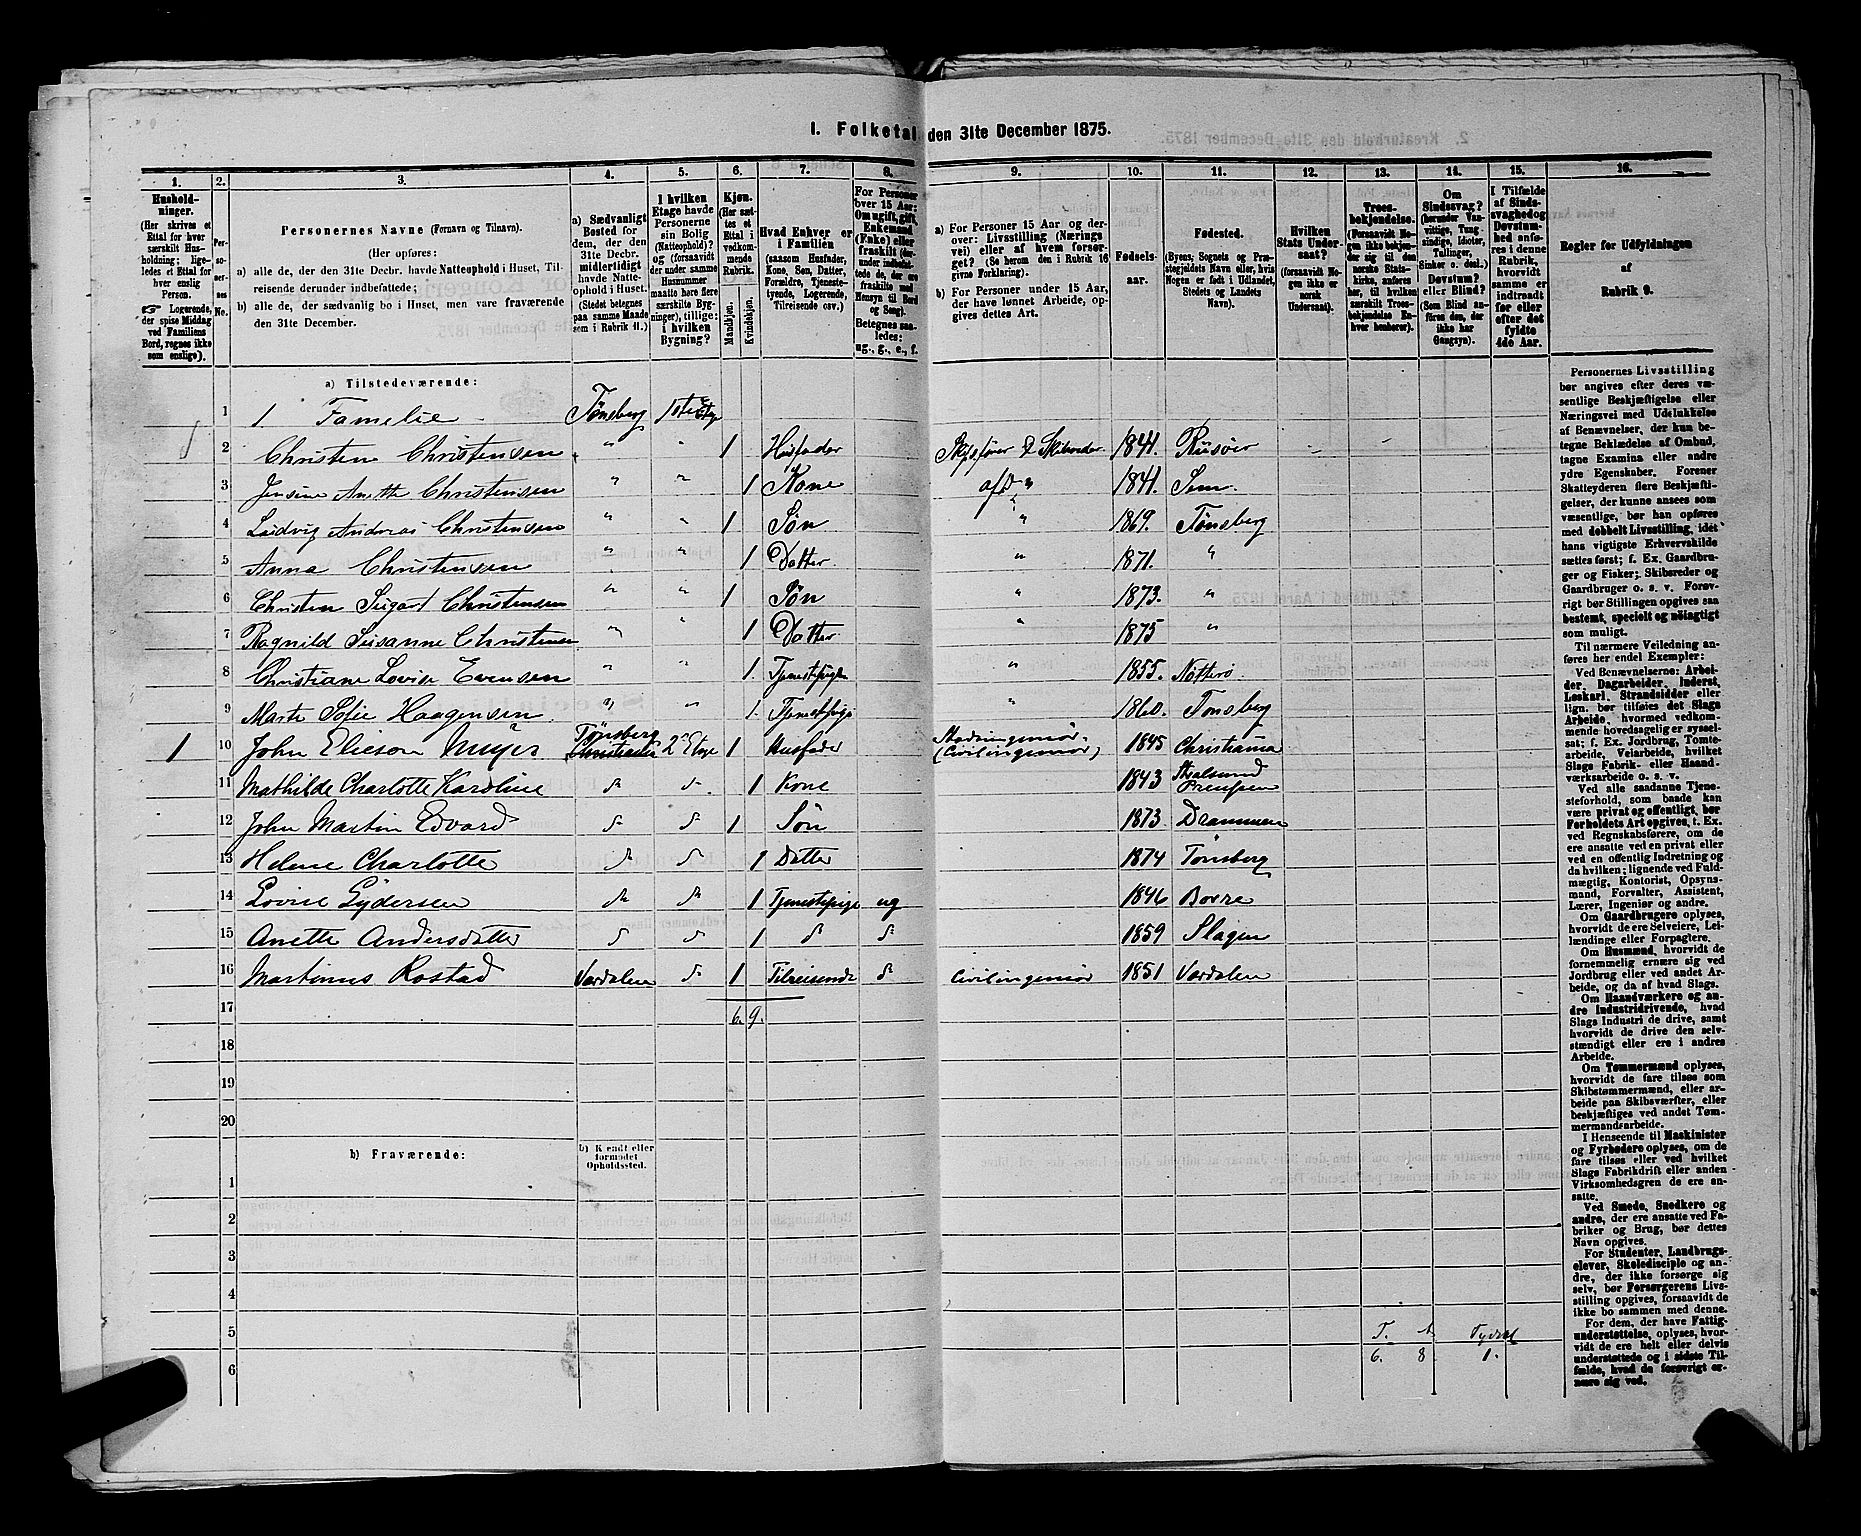 I. Folketal den 31te December 1875.
1. 2. 3. 4. 5. 6. 7. 8. 9. 10. 11. 12. 13. 14. 15. 16.
Hushold-
ninger.
(Her skrives et
Ettal for hver
særskilt Hus-
holdning; lige-
ledes et Ettal for
hver enslig
Person.
Logerende,
der spise Middag
ved Familiens
Bord, regnes ikke
som enslige).
Per-
so-
ner-
nes
No.
Personernes Navne (Fornavn og Tilnavn).
(Her opføres:
a) alle de, der den 31te Decbr. havde Natteophold i Huset, Til-
reisende derunder indbefattede;
b) alle de, der sædvanlig bo i Huset, men vare fraværende
den 31te December.
a) Sædvanligt
Bosted for
dem, der den
31te Decbr.
midlertidigt
havde Natte-
ophold i Huset.
(Stedet betegnes
paa samme Maade
som i Rubrik 11.)
I hvilken
Etage havde
Personerne
sin Bolig
(Natteophold)?
og (forsaavidt
der under samme
Husnummer
maatte høre flere
særskilte Byg-
ninger), tillige:
i hvilken
Bygning?
Kjøn.
(Her sæt-
tes et
Ettal i
vedkom-
mende
Rubrik.
Mandkjøn.
Kvindekjøn.
Hvad Enhver er
i Familien
(saasom Husfader,
Kone, Søn, Datter,
Forældre, Tjeneste-
tyende, Logerende,
Tilreisende osv.)
For Personer
over 15 Aar:
Om ugift, gift,
Enkemand
(Enke) eller
fraskilt
Betegnes saa-
ledes:
ug., g., e., f.
a) For Personer 15 Aar og der-
over: Livsstilling (Nærings
vei) eller af hvem forsør-
get? (Se herom den i Rubrik 16
givne Forklaring).
b) For Personer under 15 Aar,
der have lønnet Arbeide, op-
gives dettes Art.
Fødsels-
aar.
Fødested.
(Byens, Sognets og Præ-
stegjeldets Navn eller, hvis
Nogen er født i Udlandet,
Stedets og Landets
Navn).
Hvilken
Stats Under-
saat?
(forsaavidt No-
gen ikke er
norsk
Undersaat).
Troes-
bekjendelse.
(Forsaavidt No-
gen ikke bekjen-
der sig til den
norske Stats-
kirke, anføres
her, til hvilken
særskilt Troes-
bekjendelse En-
hver henhører).
Om
Sindssvag?
(herunder Van-
vittige, Tung-
sindige, Idioter,
Tullinger,
Sinker o. desl.)
Døvstum?
eller Blind?
(Som Blind an-
føres den, der
ikke har
Gangsyn).
I Tilfælde
af Sinds-
svaghed og
Døvstum-
hed anfø-
res i denne
Rubrik,
hvorvidt
samme er
indtraadt
før eller
efter det
fyldte
4de Aar.
Regler for Udfyldningen
af
Rubrik 9.
a) Tilstedeværende:
1 1 Famelie Tønsberg 1ste Etge
2 Christen Christensen " " 1 Husfader Skibsfører & Skibsreder 1841. Riisöer
3 Jensine Anette Christensen " " 1 Kone af D " 1841. Sem.
4 Ludvig Andreas Christensen " " 1 Søn " 1869. Tønsberg
5 Anna Christensen " " 1 Datter " 1871. "
6 Christen Sigart Christensen " " 1 Søn " 1873. "
7 Ragnild Susanne Christensen " " 1 Datter " 1875 "
8 Christiane Lovise Evensen " " 1 Tjenestpigen " 1855. Nøtterø
9 Marte Sofie Haagensen " " 1 Tjenestpige " 1860. Tønsberg
1 10 John Elieson Tønsberg 2n Etage 1 Husfader Stadsingeniør. (Civilingeniør) 1845 Christiania
11 Mathilde Charlotte Karoline 1 Kone 1843 Stralsund Preussen
12 John Martin Edvard 1 Søn 1873 Drammen
13 Helene Charlotte 1 Datter 1874 Tønsberg
14 Lovise Lydersen 1 Tjenestepige ug 1846 Borre
15 Anette Andersdatter 1 1859 Slagen
16 Martinus Rostad Værdalen 1 Tilreisende Civilingeniør 1851 Værdalen
17 6. 9.
18
19
20
b) Fraværende:
b) Kjendt eller
formodet
Opholdssted.
1
2
3
4
5 T.
6 6. 8 1.
Personernes Livsstilling
bør angives efter deres væ-
sentlige Beskjæftigelse eller
Næringsvei med Udelukkelse
af Benævnelser, der kun be-
tegne Beklædelse af Ombud,
tagne Examina eller andre
ydre Egenskaber. Forener
Skatteyderen flere Beskjæfti-
gelser, der kunne ansees som
væsentlige, bør han opføres
med dobbelt Livsstilling, idet
hans vigtigste Erhvervskilde
sættes først; f. Ex. Gaardbru-
ger og Fisker; Skibsreder og
Gaardbruger o. s. v. Forøv-
rigt bør Stillingen opgives saa
bestemt, specielt og nøiagtigt
som muligt.
Til nærmere Veiledning an-
føres her endel Exempler:
Ved Benævnelserne: Arbei-
der, Dagarbeider, Inderst,
Løskarl, Strandsidder eller
lign. bør tilføies det Slags
Arbeide, hvormed vedkom-
mende hovedsagelig er syssel-
sat; f. Ex. Jordbrug, Tomte-
arbeide, Veiarbeide, hvilket
Slags Fabrik- eller Haand-
værksarbeide o. s. v.
Ved alle saadanne Tjene-
steforhold, som baade kan
være privat og offentligt, bør
Forholdets Art opgives, t. Ex.
ved Regnskabsførere, om de
ere ansatte ved en privat eller
ved en offentlig Indretning og
da hvilken; lignende ved Fuld-
mægtig, Kontorist, Opsyns-
mand, Forvalter, Assistent,
Lærer, Ingeniør og andre.
Om Gaardbrugere oplyses,
hvorvidt de ere Selveiere, Lei-
lændinge eller Forpagtere.
Om Husmænd, hvorvidt de
fornemmelig ernære sig ved
Jordbrug eller ved andet Ar-
beide, og da af hvad Slags.
Om Haandværkere og an-
dre Industridrivende, hvad
Slags Industri de drive, samt
hvorvidt de drive den selv-
stændigt eller ere i andres
Arbeide.
Om Tømmermænd oplyses,
hvorvidt de fare tilsøs som
Skibstømmermænd, eller ar-
beide paa Skibsværfter, eller
beskjæftiges ved andet Tøm-
mermandsarbeide.
I Henseende til Maskinister
og Fyrbødere oplyses, om de
fare tilsøs eller ved hvilket
Slags Fabrikdrift eller anden
Virksomhedsgren de ere an-
satte.
Ved Smede, Snedkere og
andre, der ere ansatte ved Fa-
briker og Brug, bør dettes
Navn opgives.
For Studenter, Landbrugs-
elever, Skoledisciple og an-
dre, der ikke forsørge sig
selv, bør Forsørgerens Livs-
stilling opgives, forsaavidt de
ikke bo sammen med denne.
For dem, der have Fattig-
understøttelse, oplyses, hvor-
vidt de ere helt eller delvis
understøttede og i sidste Til-
fælde, hvad de forøvrigt er-
nære sig ved.